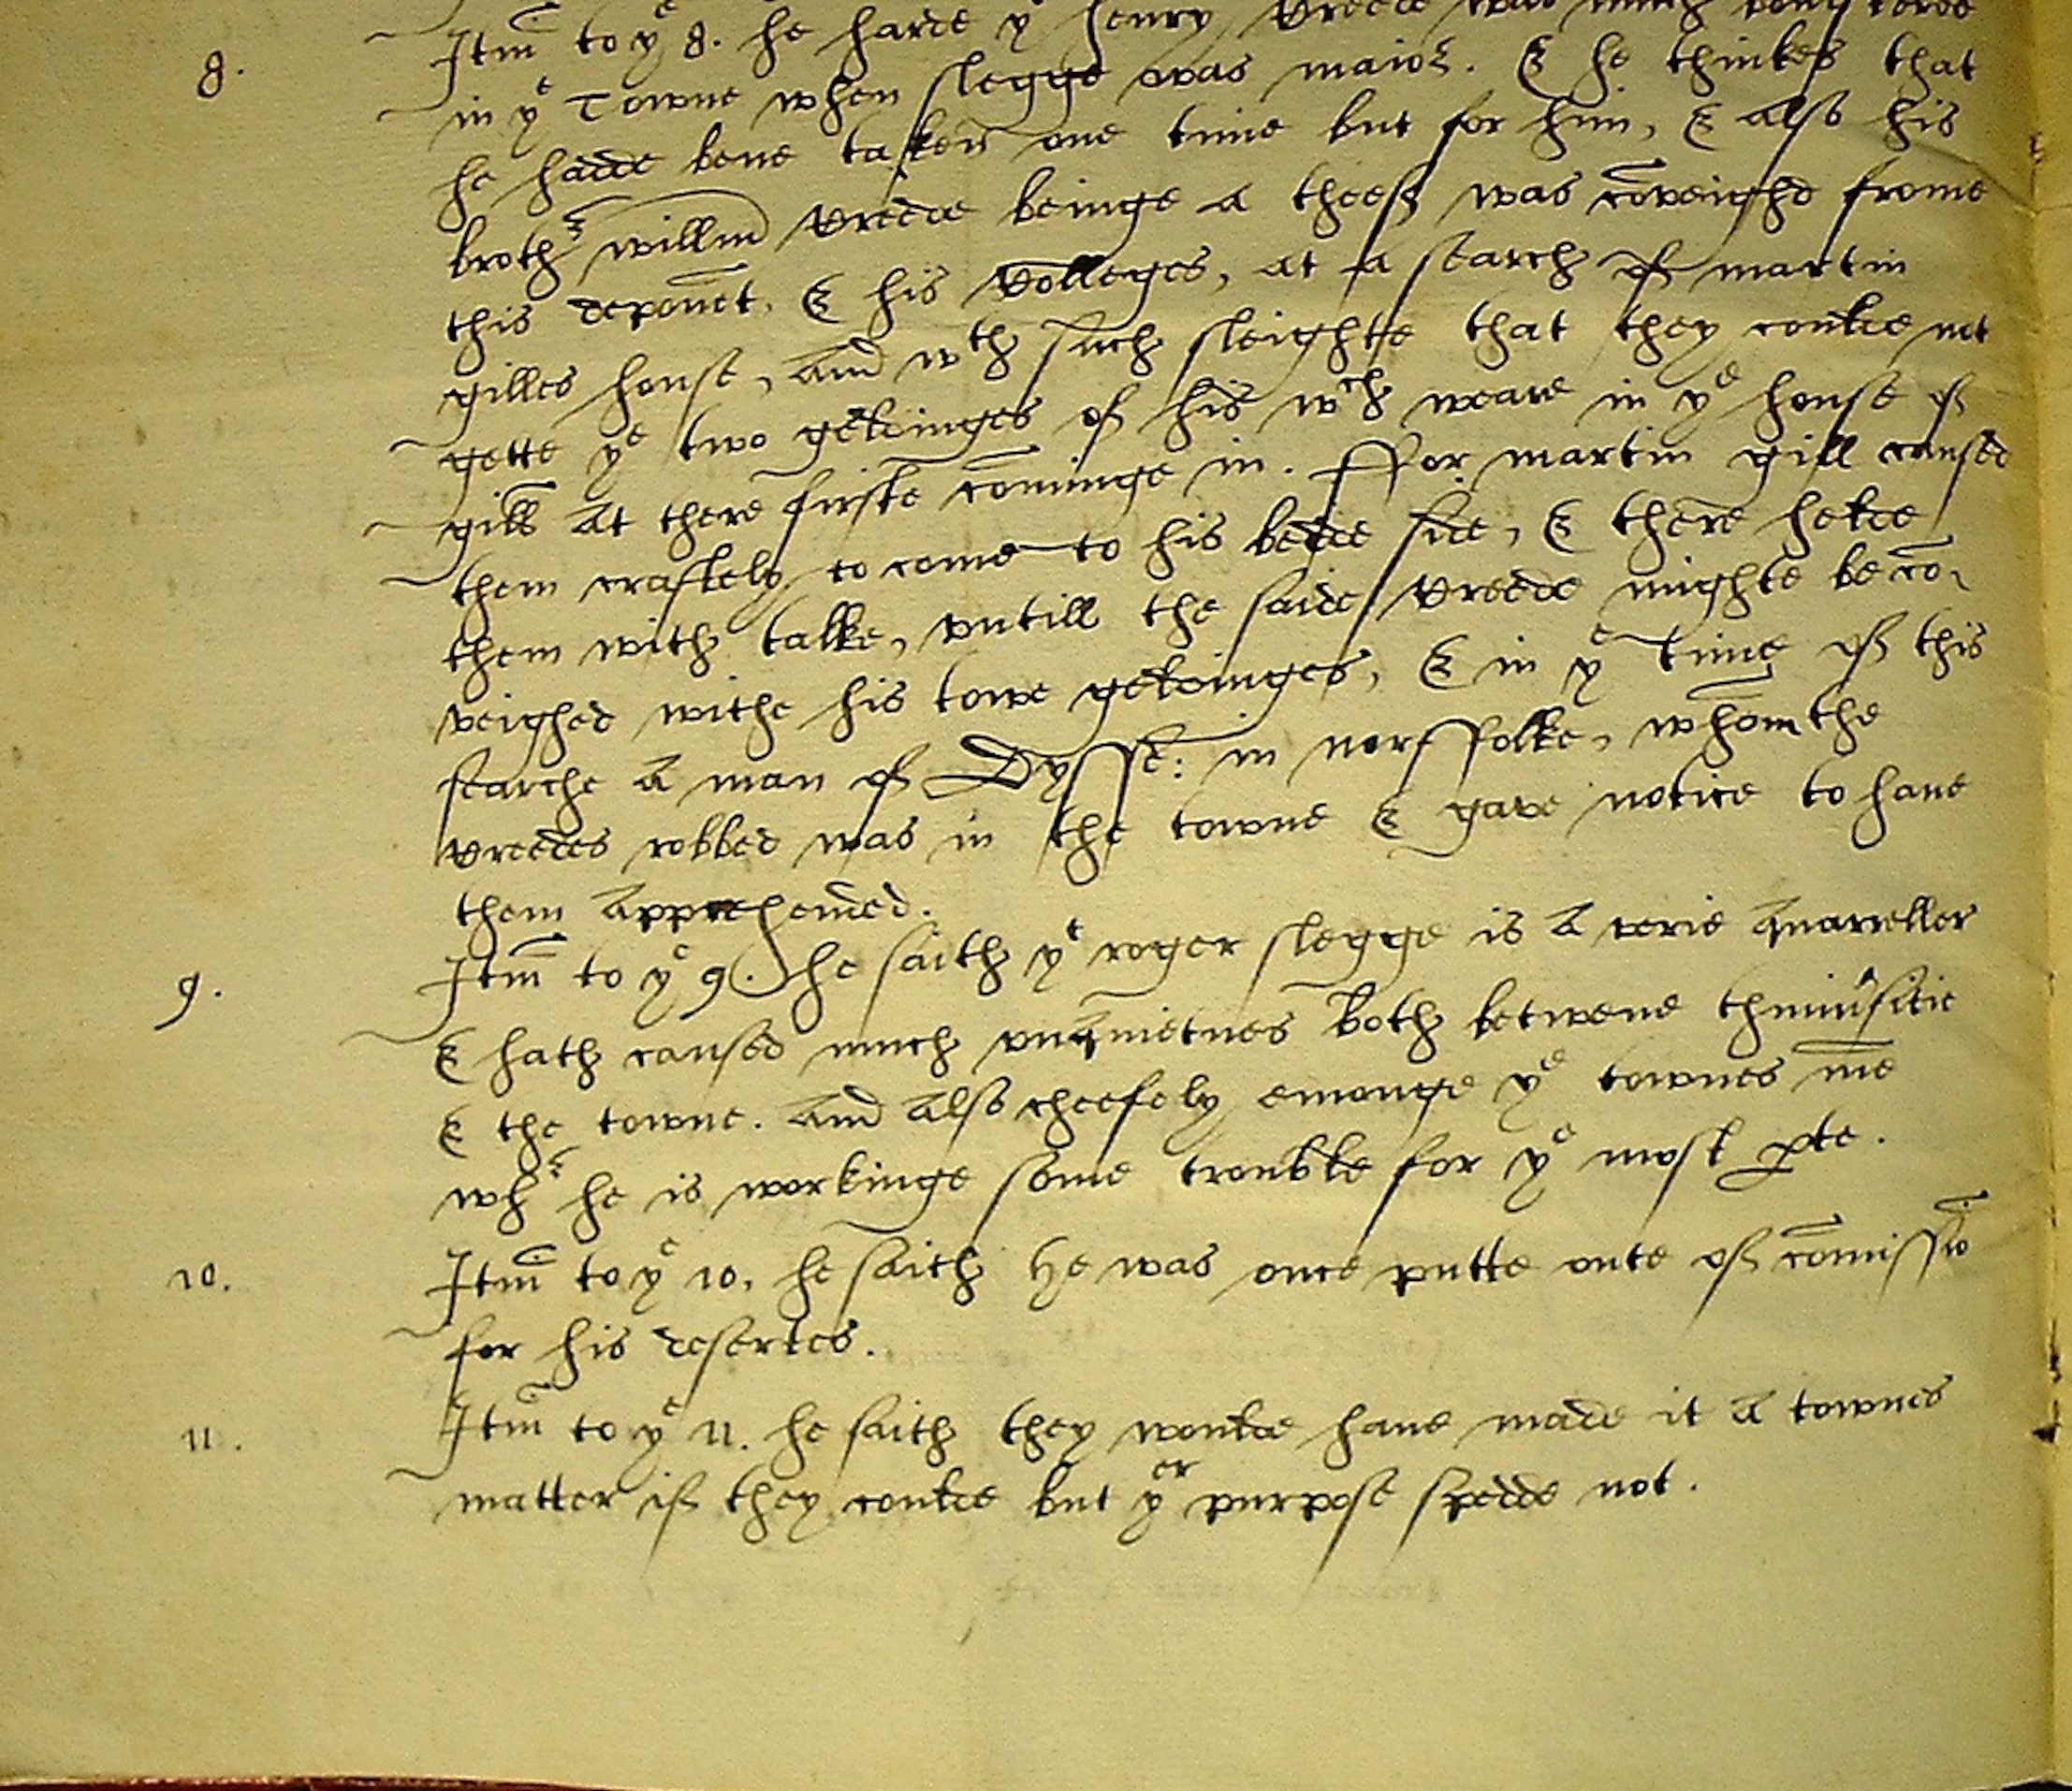 8. Itm̄ to yᵉ 8. he harde yᵗ henry Vreede was much
in yᵉ Towne when slegge was maior. & he thinkes that
he hadde bene taken one time but for him, & also his
brothʳ willm̄ Vreede beinge a theef was cōveighd frome
this deponēt, & his Colleges, at a search of martin
gilles house, and wᵗʰ such sleighte that they coulde not
gette yᵉ two geldinges of his wᶜʰ weare in yᵉ house of
gills At there firste cōminge in. ffor martin gill caused
them craftely to come to his bedde side, & there helde
them with talke, vntill the saide Vreede mighte be cō-
veighed withe his towe geldinges, & in yᵉ time of this
searche A man of Dysse: in norffolke, whom the
vreedes robbed was in the towne & gave notice to haue
them Apprehended.
9. Itm̄ to yᵉ 9. he saith yᵗ roger slegge is A verie Quarreller
& hath caused much vnquietnes both betwene thuniūsitie
& the towne. And Also cheefely emonge yᵉ townes mē
whʳ he is workinge some trouble for yᵉ most pte.
10. Itm̄ to yᵉ 10. he saith He was once putte oute of cōmissiō
for his desertes.
11. Itm̄ to yᵉ 11. he saith they woulde haue made it A townes
matter if they coulde but yᵉʳ purpose spedde not.